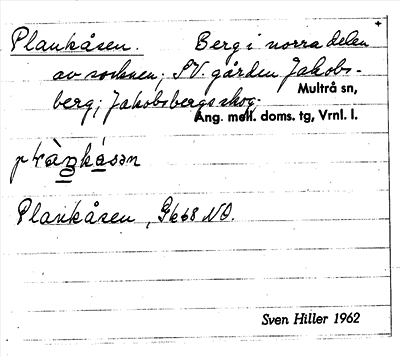 Plankåsen. Berg i norra delen
av socknen; SV. gården Jakobs-
berg; Jakobsbergs skog.
Multrå sn,
Ång. mell. doms. tg, Vrnl. l.
Plankåsen, Gk68 NO.
Sven Hiller 1962